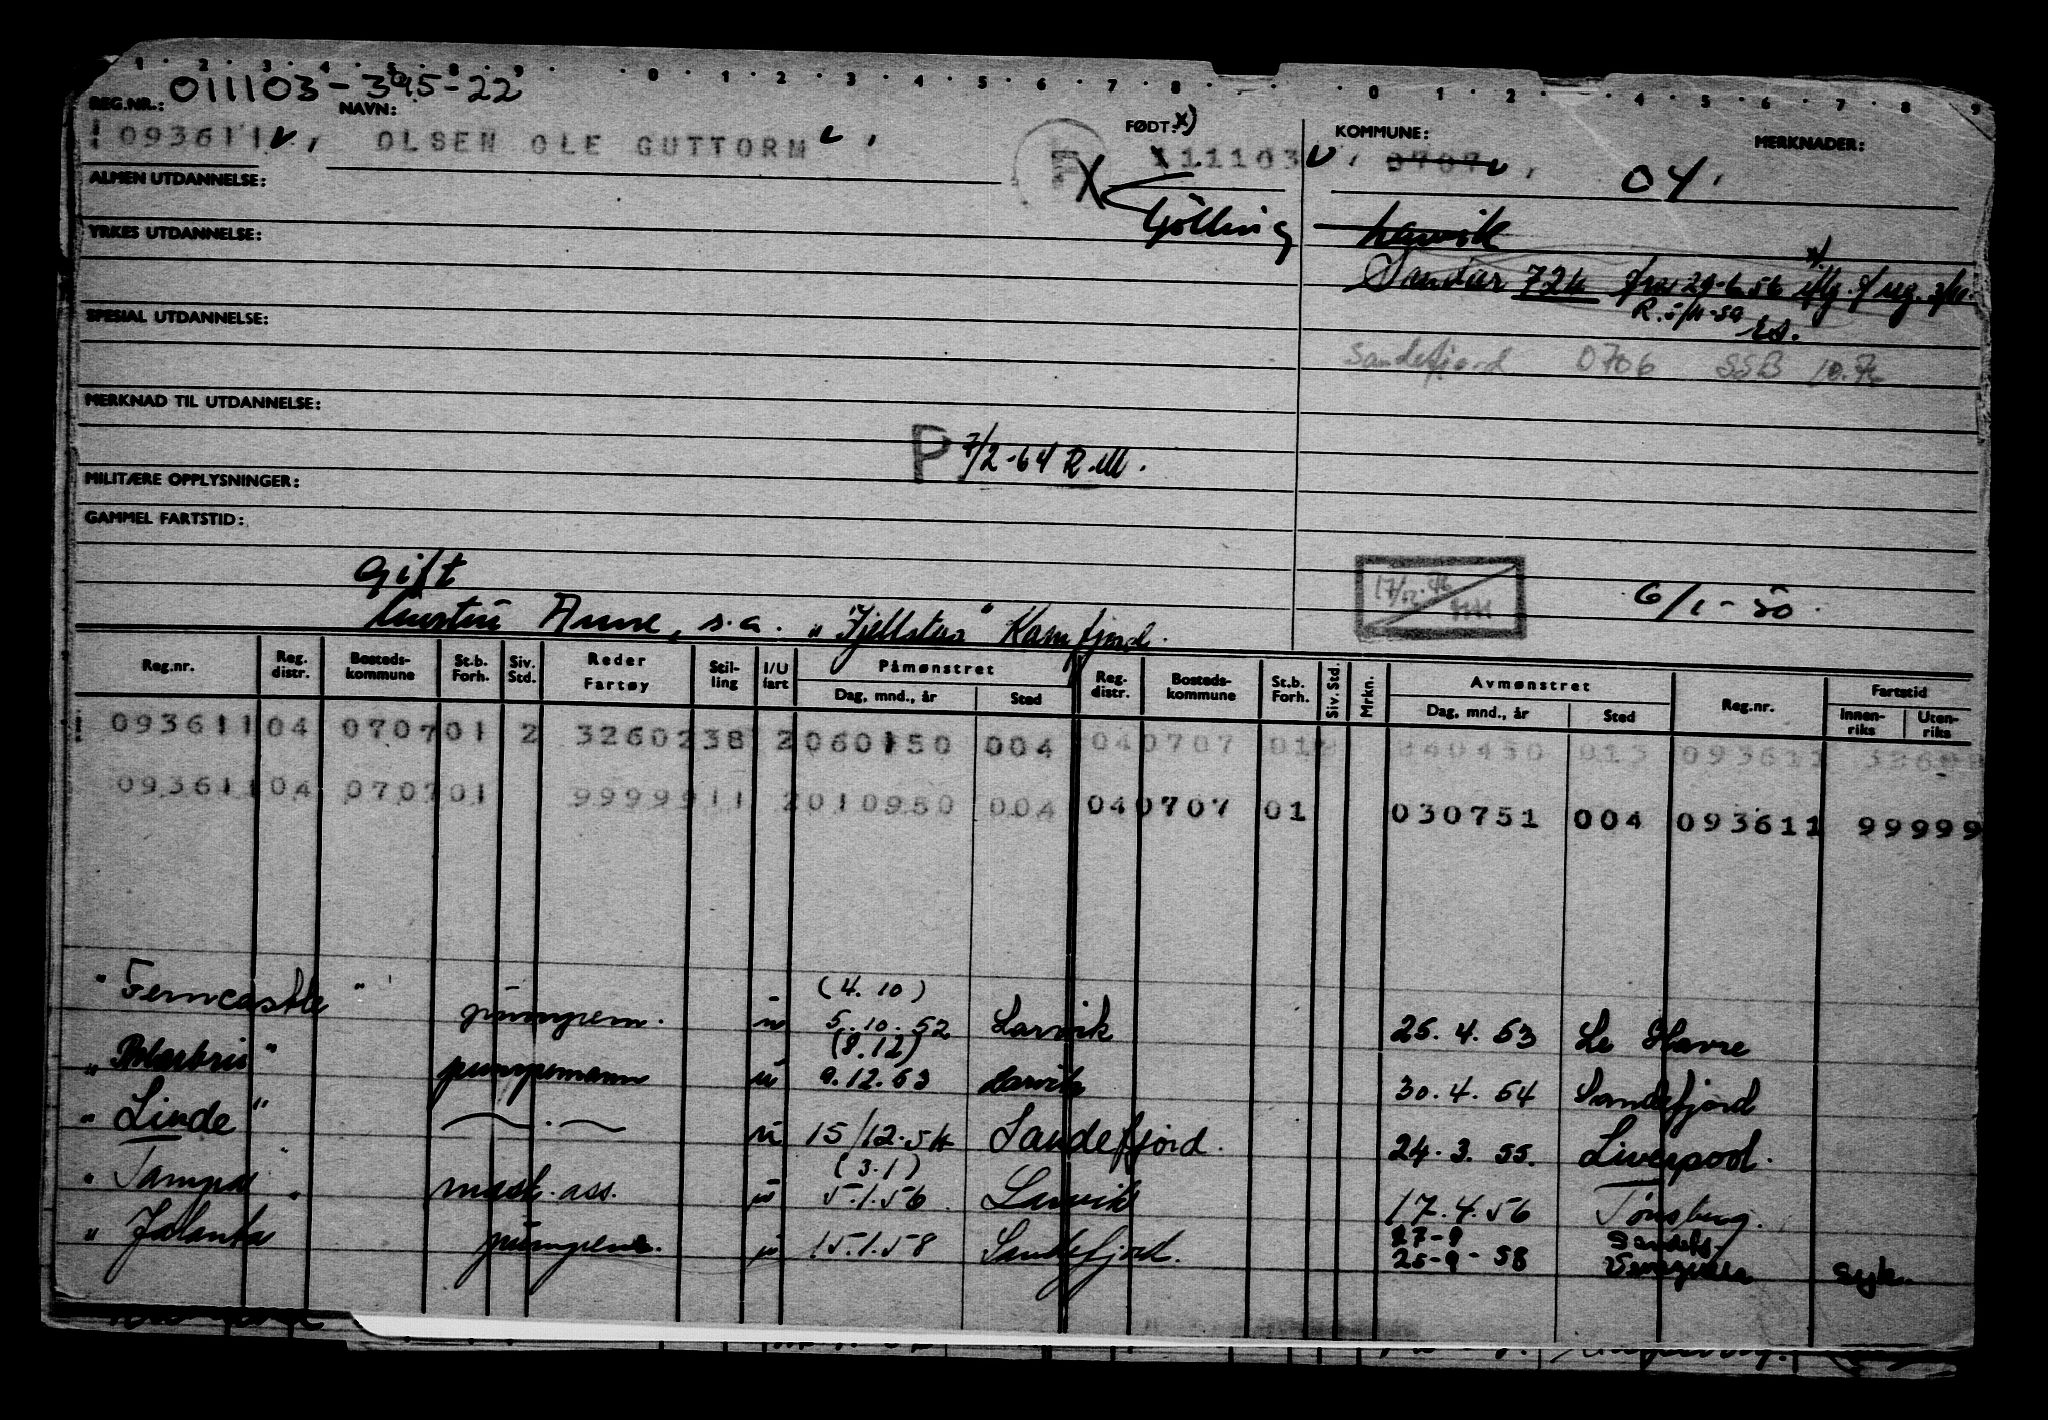 1 2 3 4 5 8 9 0 1 2 3 4 5 6 7 8 0 1 2 4 5 6 7 8 9
011103-395-22
REG.NR.: NAVN: FØDT: x) KOMMUNE: MERKNADER:
! 093611 v, OLSEN OLE GUTTORM v, F 111103 v, 0707 v, 04,
ALMEN UTDANNELSE:
X Larvik
YRKES UTDANNELSE:
Sandar 72k fra 29-6-56
R. 5/11-59
SPESIAL UTDANNELSE:
Sandefjord 0706 SSB
MERKNAD TIL UTDANNELSE:
P 7/2-64 R.M.
MILITÆRE OPPLYSNINGER:
GAMMEL FARTSTID:
Gift
17/12.46 6/1-50
Hustru Anne, s.a. Kamfjord.
Reg.nr. Reg. distr. Bosteds-kommune St.b. Forh. Siv. Std. Reder Fartøy Stil-ling I/U fart Påmønstret Dag, mnd., år Sted Reg. distr. Bosteds-kommune St.b. Forh. Siv. Std. Mrkn. Avmønstret Dag, mnd., år Sted Reg.nr. Fartstid Innen-riks Uten-riks
! 093611 04 0707 01 2 32602 38 2 060150 004 04 0707 01 015 093611
093611 04 0707 01 99999 11 2 010950 004 04 0707 01 030751 004 093611 99999
(4.10)
"Ferncastle" pumpem. u 5.10.52 Larvik 25.4.53 Le Havre
(8.12)
"Polarbris" pumpemann u 9.12.53 Larvik 30.4.54 Sandefjord
"Linde" — . — u 15/12.54 Sandefjord. 24.3.55. Liverpool.
(3.1)
"Tampa" mask.ass. u 5.1.56 Larvik 17.4.56 Tønsberg.
27-9
"Jalanta pumpem. u 15.1.58 Sandefjord. 25-9-58 Venezuela syk.